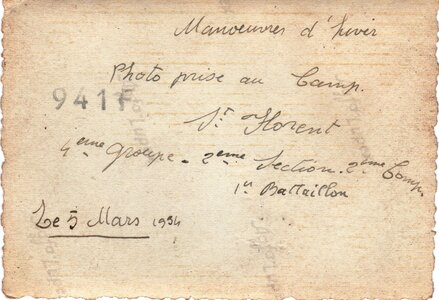 Manoeuvres d'hiver
Photo prise au Camp.
941
St Florent
4ème Groupe - 2ème Section - 2ème Comp.
1er Battaillon
Le 5 Mars 1934